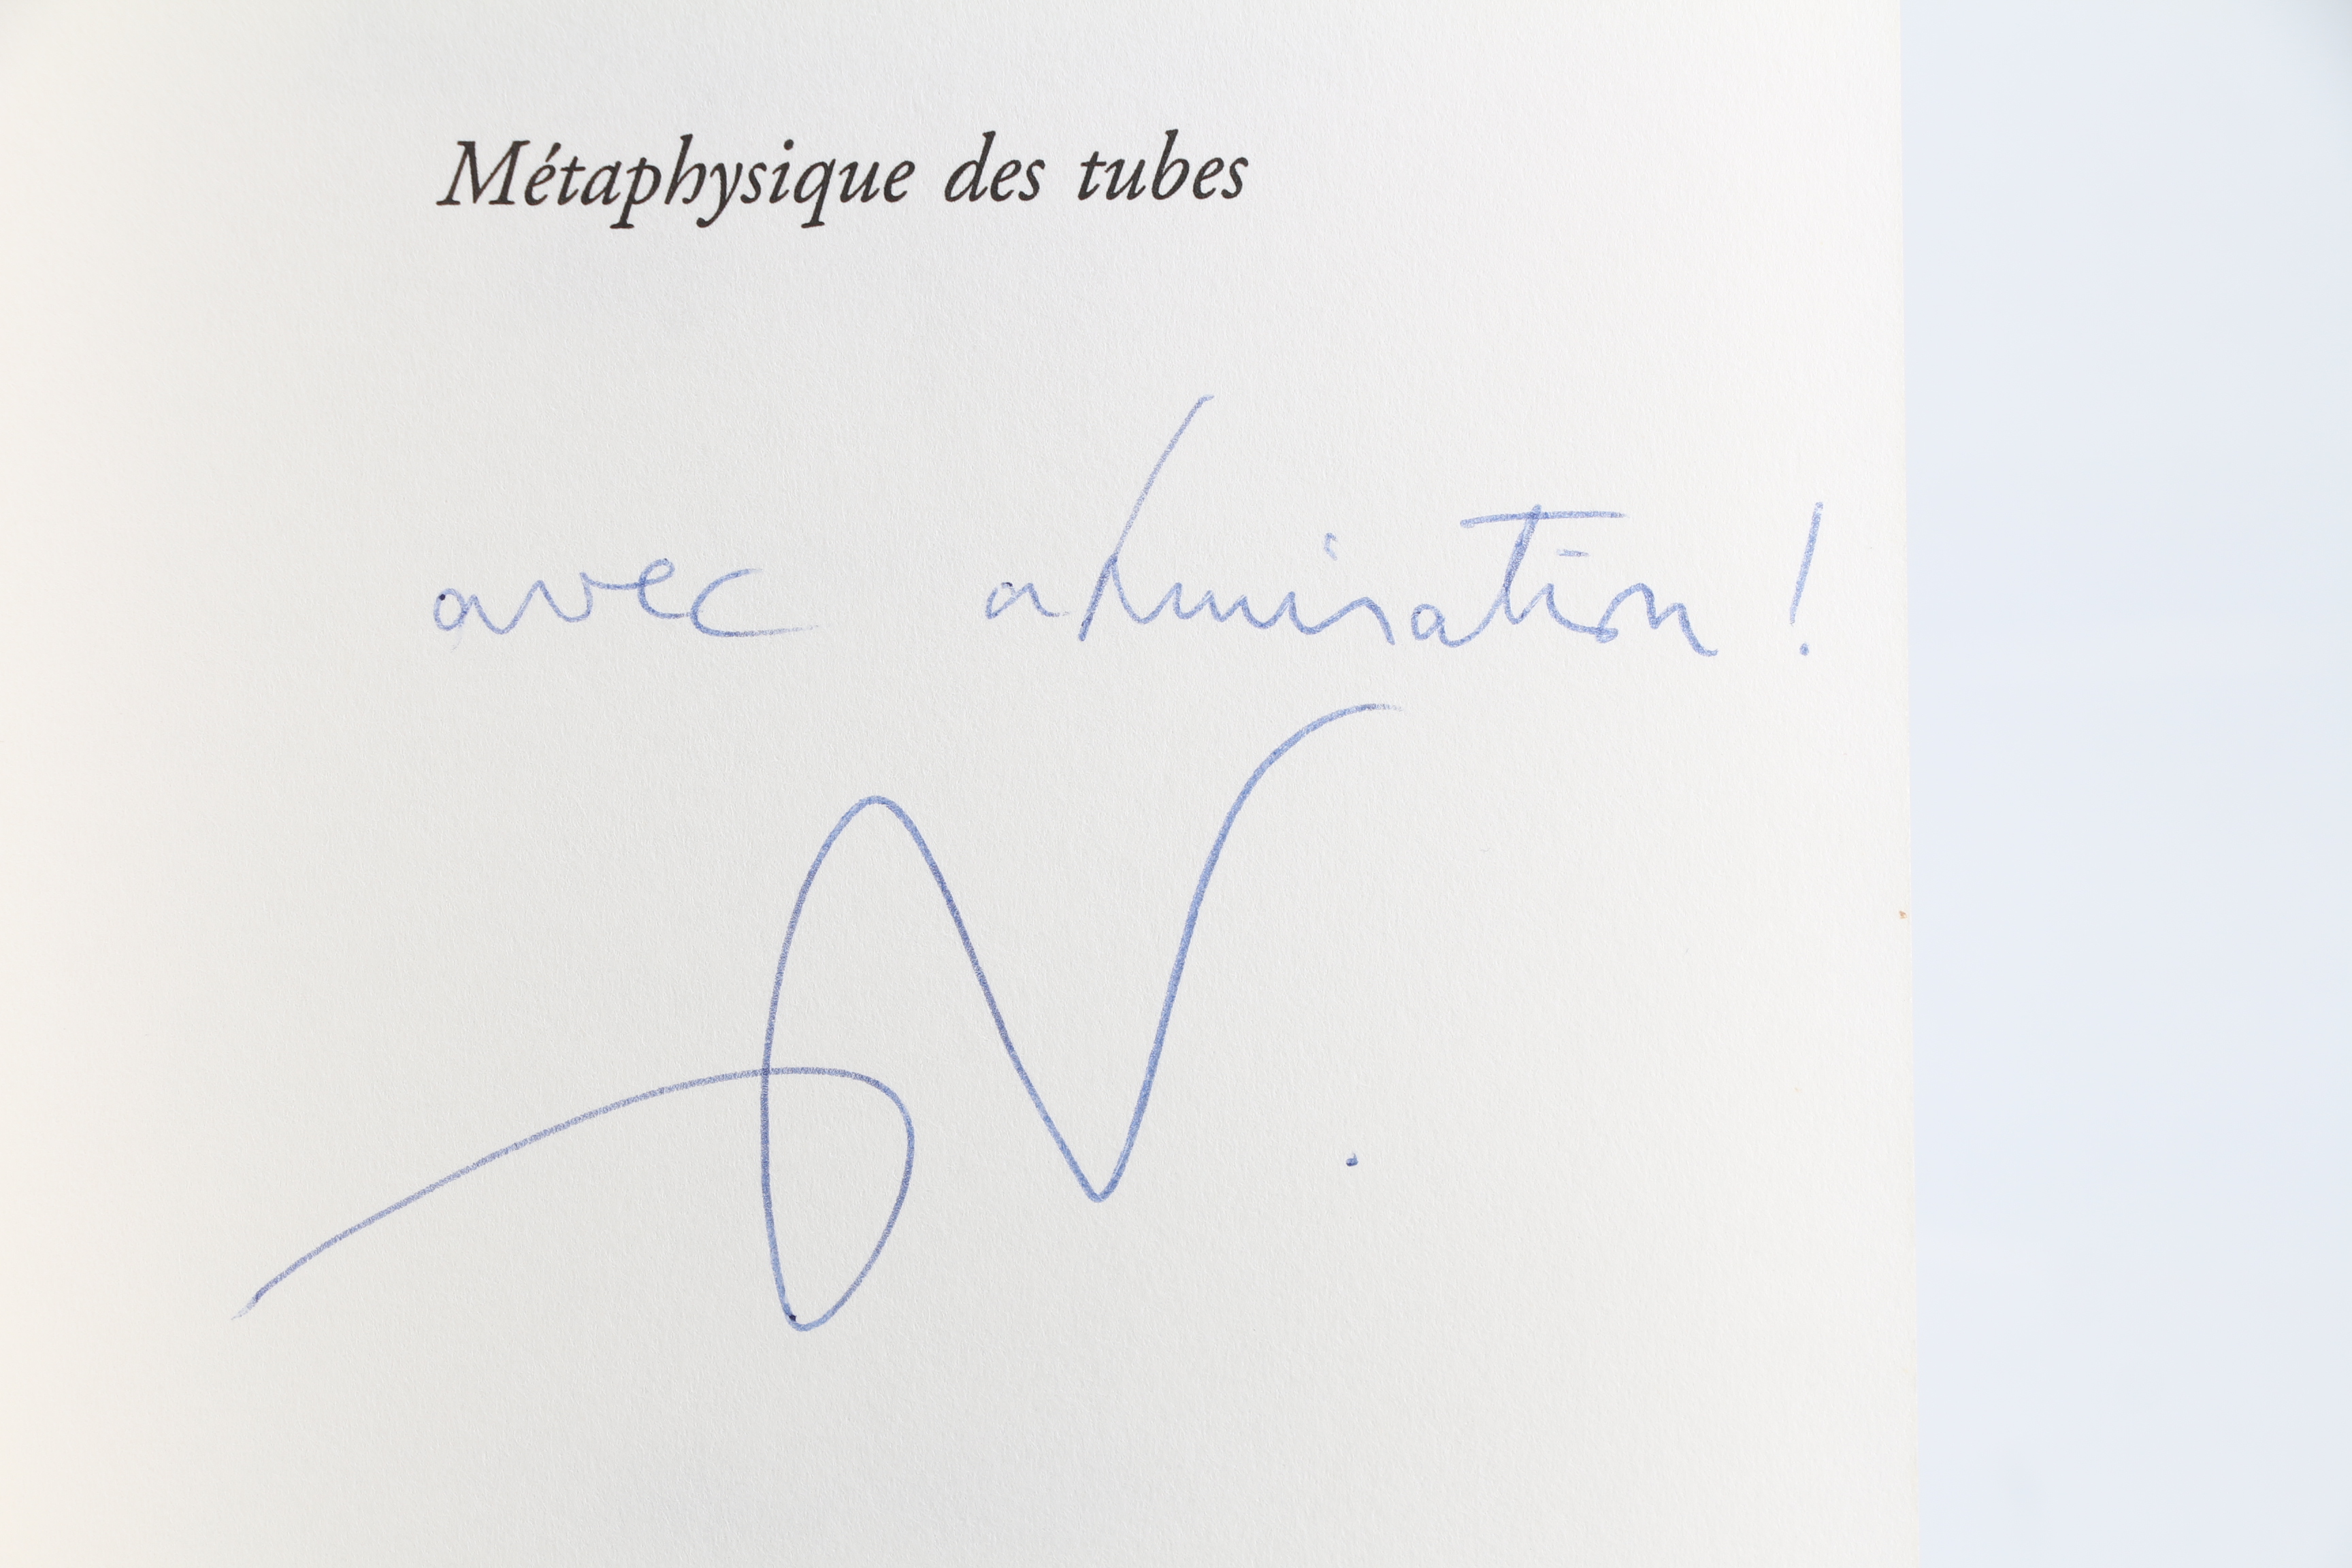 Métaphysique des tubes
avec admiration !